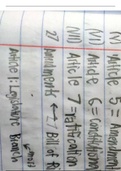 (V) Article 5 = Amendment
(VI) Article 6 = Constitution
(VII) Article 7 = Ratification
27 Amendments ← Bill of
Article 1 Legislative Branch